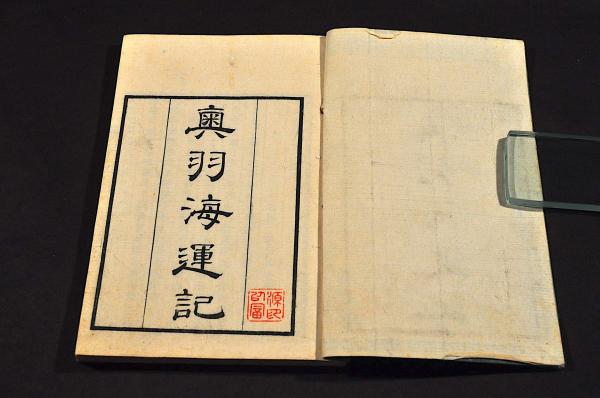 奥羽海運記